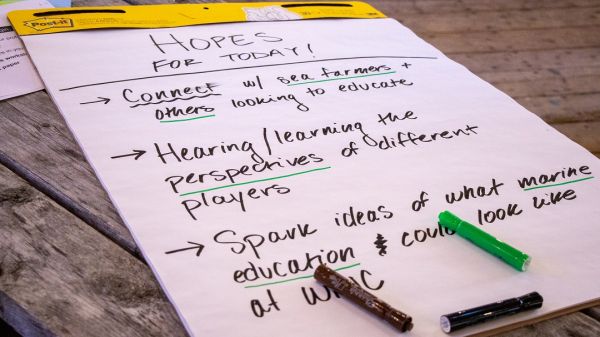 Post-it
HOPES
FOR TODAY!
→ Connect w/ sea farmers +
others looking to educate
→ Hearing/learning the
perspectives of different
players
→ Spark ideas of what marine
education & could look like
at
paper